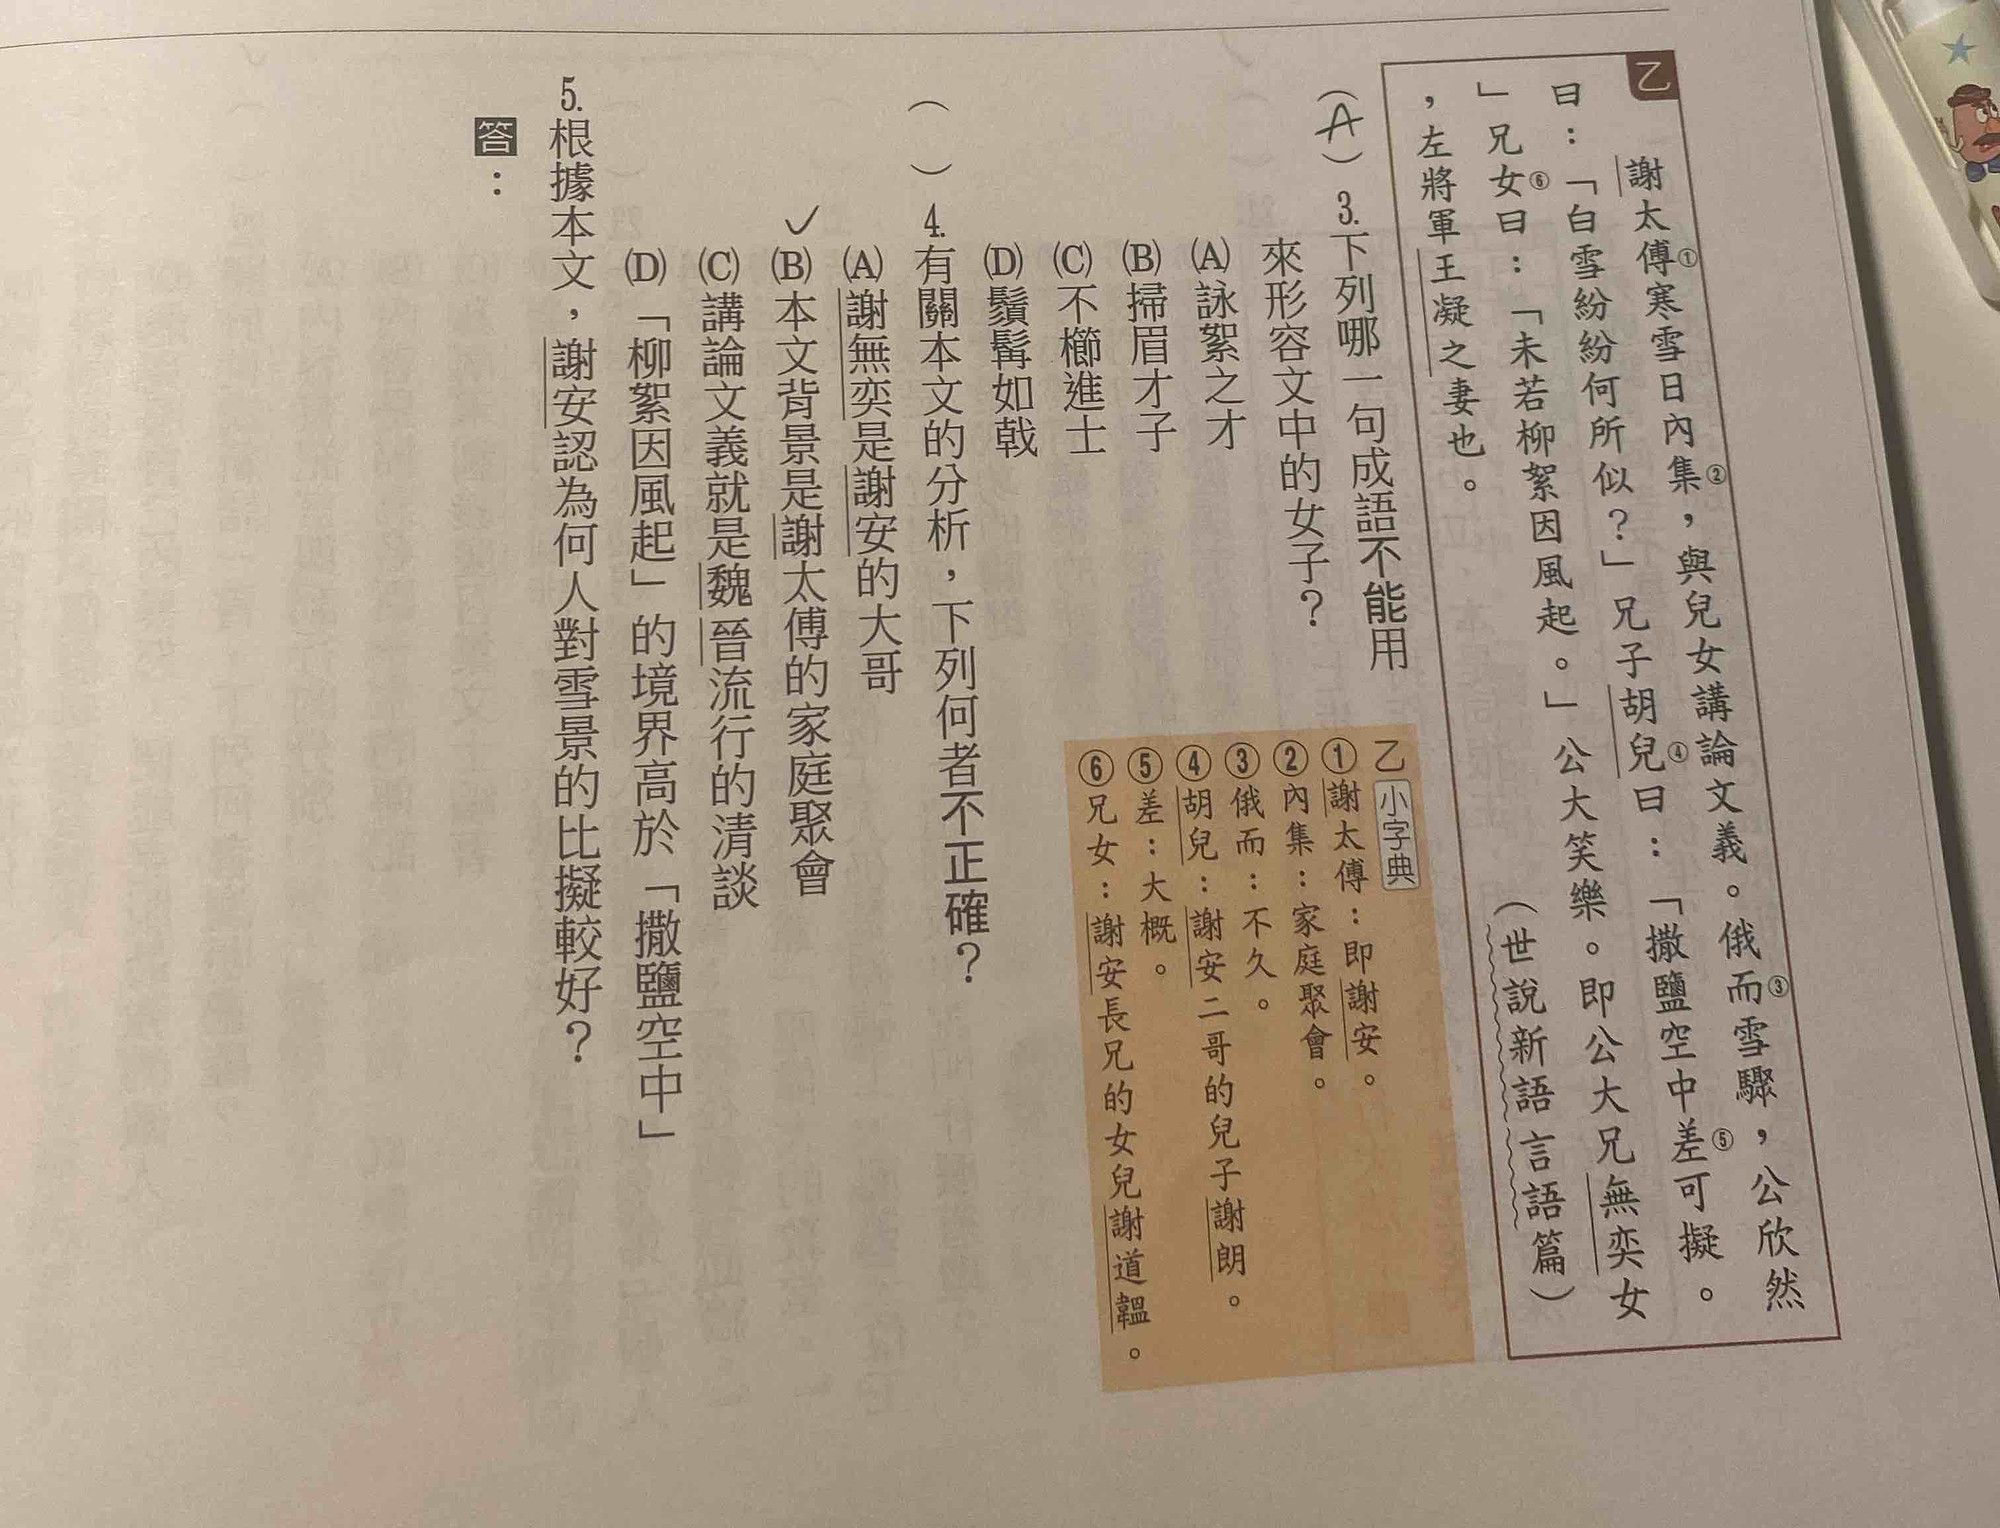 乙
謝太傅①寒雪日內集②，與兒女講論文義。俄而③雪驟，公欣然
曰：「白雪紛紛何所似？」兄子胡兒④曰：「撒鹽空中差⑤可擬。
」兄女⑥曰：「未若柳絮因風起。」公大笑樂。即公大兄無奕女
，左將軍王凝之妻也。
（世說新語 言語篇）
（A）3.下列哪一句成語不能用
來形容文中的女子？
(A)詠絮之才
(B)掃眉才子
(C)不櫛進士
(D)鬚髯如戟
乙 小字典
①謝太傅：即謝安。
②內集：家庭聚會。
③俄而：不久。
④胡兒：謝安二哥的兒子謝朗。
⑤差：大概。
⑥兄女：謝安長兄的女兒謝道韞。
（ ）4.有關本文的分析，下列何者不正確？
(A)謝無奕是謝安的大哥
✓(B)本文背景是謝太傅的家庭聚會
(C)講論文義就是魏晉流行的清談
(D)「柳絮因風起」的境界高於「撒鹽空中」
5.根據本文，謝安認為何人對雪景的比擬較好？
答：